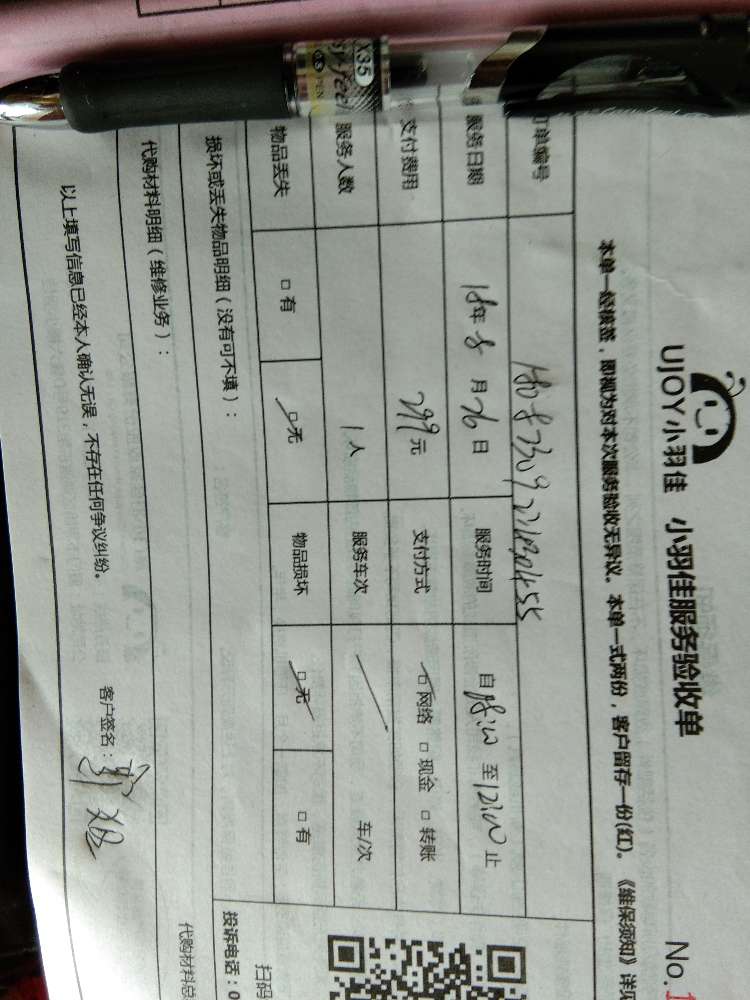 X35
PEN
UJOY小羽佳 小羽佳服务验收单
No.1
本单一经核签，即视为对本次服务验收无异议。本单一式两份，客户留存一份(红)。《维保须知》详见
订单编号
服务日期 18年8月26日 服务时间 自 至12:00止
支付费用 299元 支付方式 网络 现金 转账
服务人数 1人 服务车次 车/次
物品丢失 有 无 物品损坏 无 有
损坏或丢失物品明细（没有可不填）：
代购材料明细（维修业务）：
代购材料总
以上填写信息已经本人确认无误，不存在任何争议纠纷。
客户签名：
扫码
投诉电话：0